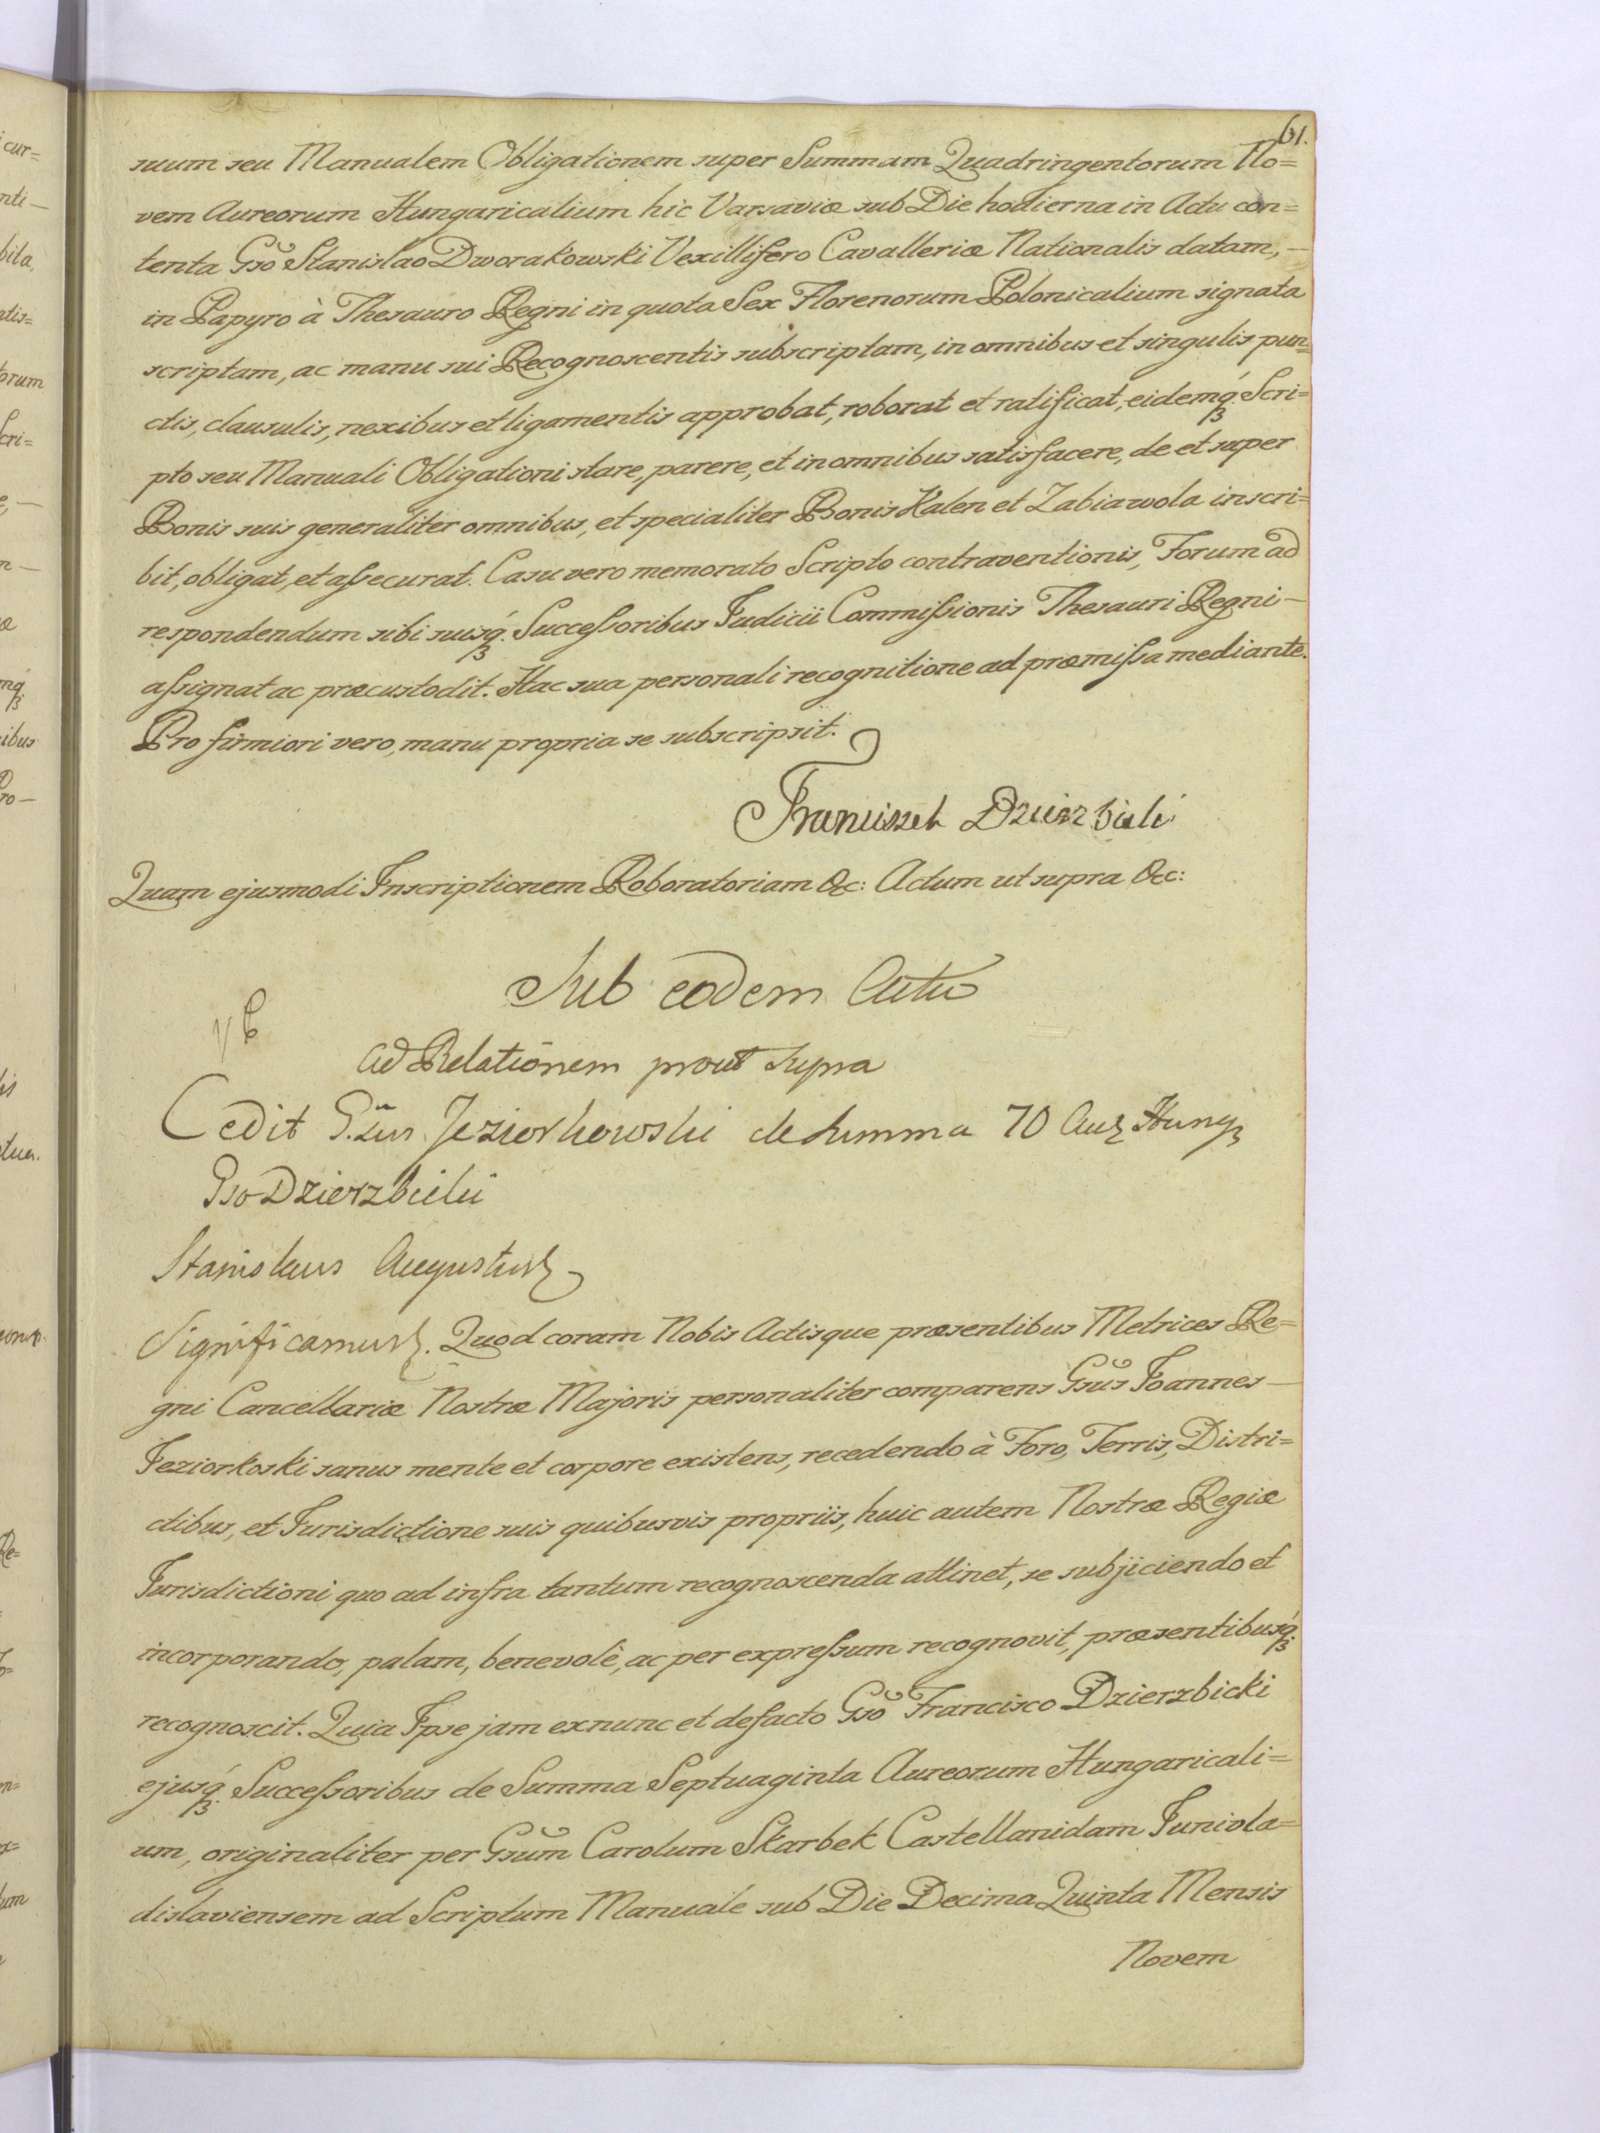 61.
suum seu Manualem Obligationem super Summam Quadringentorum No=
vem Aureorum Hungaricalium hic Varsaviæ sub Die hodierna in Actu con=
tenta Gso Stanislao Dworakowski Vexillifero Cavalleriæ Nationalis datam,—
in Papyro à Thesauro Regni in quota Sex Florenorum Polonicalium signata
scriptam, ac manu sui Recognoscentis subscriptam, in omnibus et singulis pun=
ctis, clausulis, nexibus et ligamentis approbat, roborat et ratificat, eidemq́ Scri=
pto seu Manuali Obligationi stare, parere, et in omnibus satisfacere, de et super
Bonis suis generaliter omnibus, et specialiter Bonis Kalen et Zabiawola inscri=
bit, obligat, et assecurat. Casu vero memorato Scripto contraventionis, Forum ad
respondendum sibi suisq́ Successoribus Judicii Commissionis Thesauri Regni—
assignat ac præcustodit. Hac sua personali recognitione ad præmissa mediante.
Pro firmiori vero, manu propria se subscripsit.
Franciszek Dzierzbicki
Quam ejusmodi Inscriptionem Roboratoriam &c: Actum ut supra &c:
Sub eodem Actu
ad Relationem prout supra
Cedit G.sus Jeziorkowski de summa 70 Aur Hung
Gso Dzierzbicki
Stanislaus Augustus
Significamus. Quod coram Nobis Actisque præsentibus Metrices Re=
gni Cancellariæ Nostræ Majoris personaliter comparens Gsus Joannes—
Jeziorkoski sanus mente et corpore existens, recedendo à Foro, Terris, Distri=
ctibus, et Jurisdictione suis quibusvis propriis, huic autem Nostræ Regiæ
Jurisdictioni quo ad infra tantum recognoscenda attinet, se subjiciendo et
incorporando, palam, benevolè, ac per expressum recognovit, præsentibusq́
recognoscit. Quia Ipse jam exnunc et defacto Gso Francisco Dzierzbicki
ejusq́ Successoribus de Summa Septuaginta Aureorum Hungaricali=
um, originaliter per Gsum Carolum Skarbek Castellanidam Juniola=
dislaviensem ad Scriptum Manuale sub Die Decima Quinta Mensis
Novem